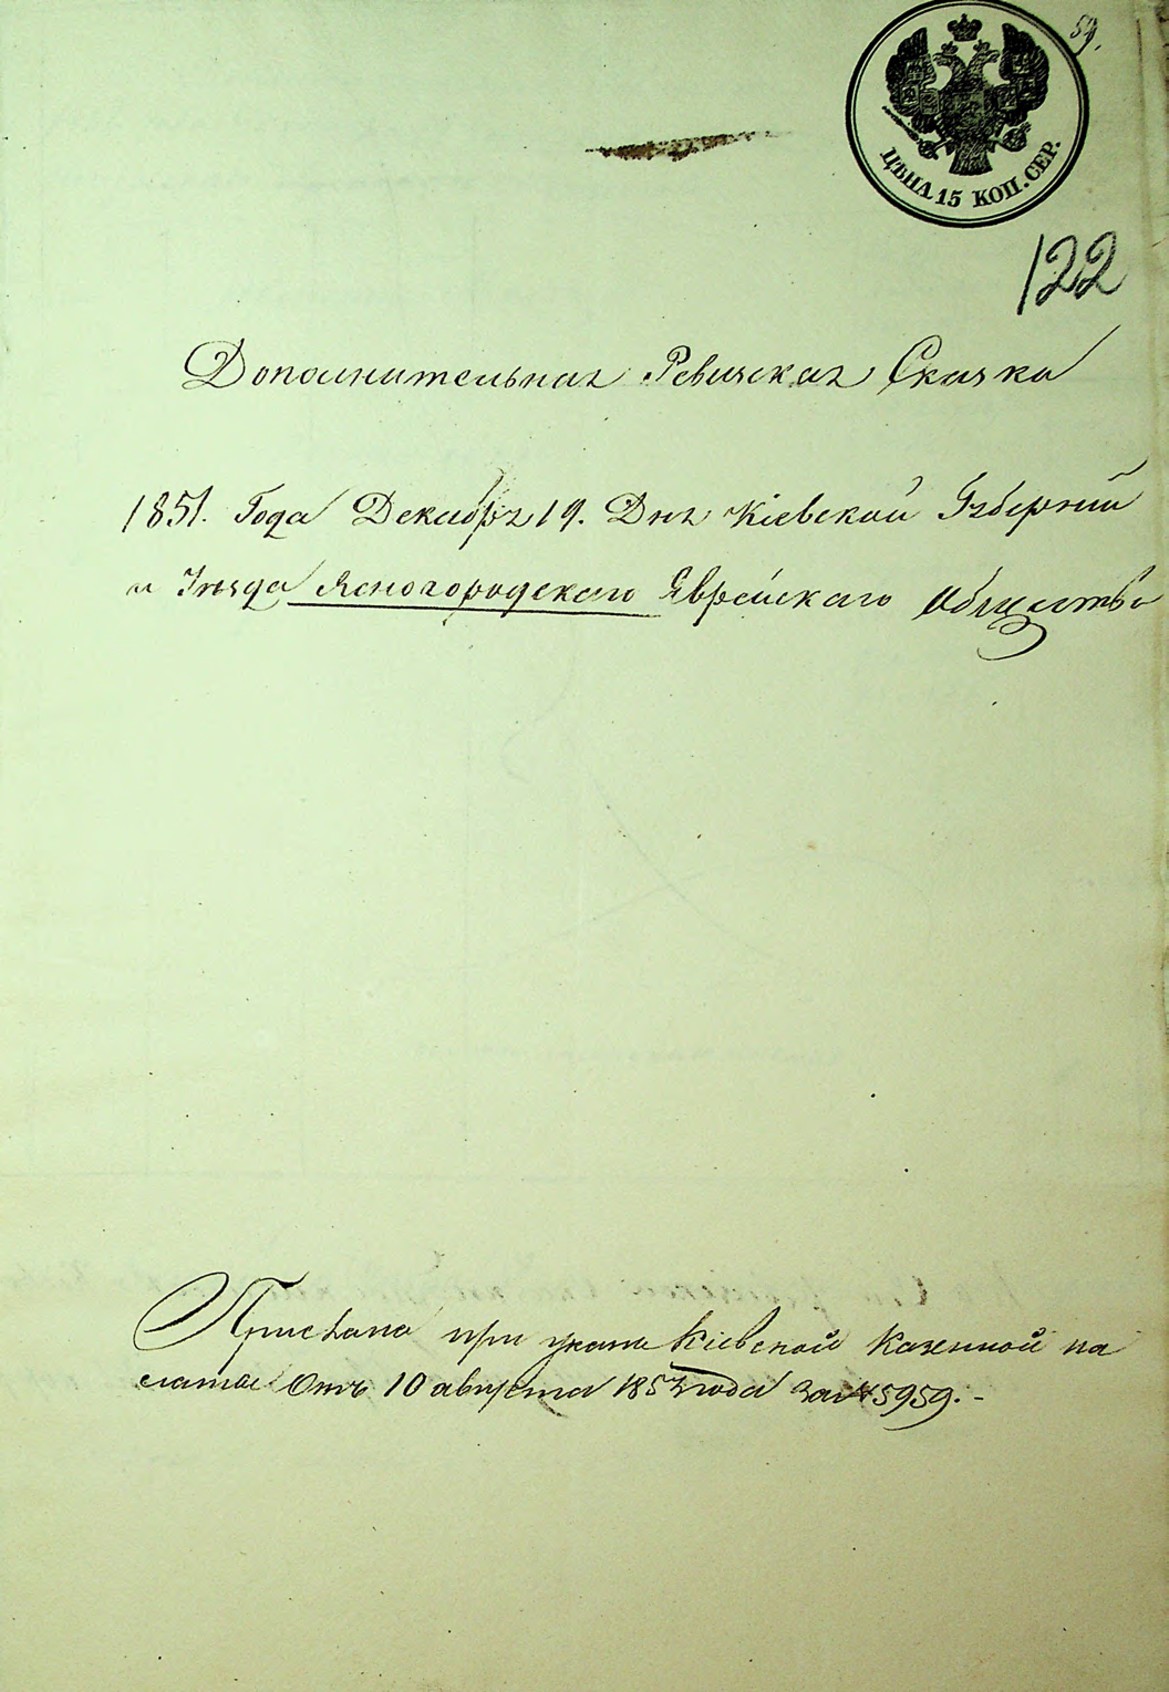 59.
ЦѢНА 15 КОП. СЕР.
122
Дополнительная Ревизская Сказка
1851. Года Декабря 19. Дня Кіевской Губерніи
и Уѣзда Ясногородскаго Еврейскаго Общества
Прислана при указѣ Кіевской Казенной па
латы Отъ 10 августа 1853 года за № 5959.-